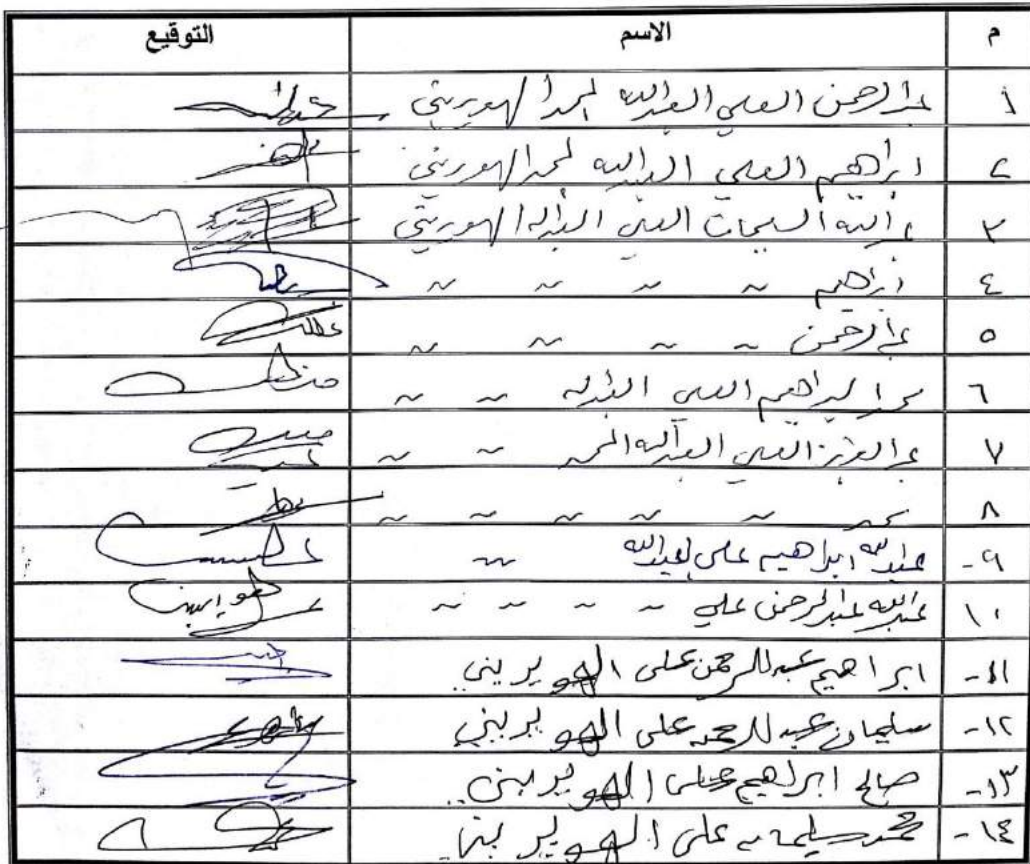 م الاسم التوقيع
١ عبدالرحمن العلي العبدالله المحمد الهويريني
٢ ابراهيم العلي العبدالله المحمد الهويريني
٣ عبدالله السليمان العلي العبدالله الهويريني
٤ ابراهيم ~ ~ ~ ~
٥ عبدالرحمن ~ ~ ~ ~
٦ محمد ابراهيم العلي العبدالله ~ ~
٧ عبدالعزيز العلي العبدالله المحمد ~ ~
٨ محمد ~ ~ ~ ~ ~
٩- عبدالله ابراهيم علي العبدالله ~
١٠ عبدالله عبدالرحمن علي ~ ~ ~ ~
١١- ابراهيم عبدالرحمن على الهويريني
١٢- سليمان عبدالرحمن على الهويريني
١٣- صالح ابراهيم على الهويريني
١٤- محمد سليمان على الهويريني